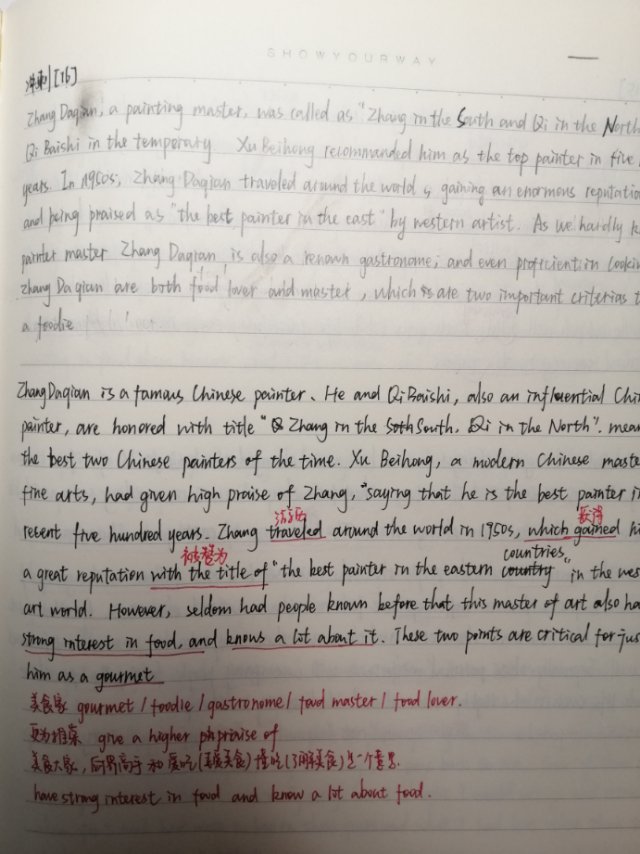 SHOWYOURWAY
冲刺[16]
Zhang Daqian, a painting master, was called as "Zhang in the South and Qi in the North
Qi Baishi in the temporary. Xu Beihong recommanded him as the top painter in five
years. In 1950s, Zhang Daqian traveled around the world, gaining an enormous reputation
and being praised as "the best painter in the east" by western artist. As we hardly k
painter master Zhang Daqian is also a known gastronome, and even proficient in cookin
Zhang Daqian are both food lover and master, which are two important criterias t
a foodie
Zhang Daqian is a famous Chinese painter. He and Qi Baishi, also an influential Chi
painter, are honored with title "Zhang in the South, Qi in the North". mean
the best two Chinese painters of the time. Xu Beihong, a modern Chinese maste
fine arts, had given high praise of Zhang, saying that he is the best painter in
游历 获得
recent five hundred years. Zhang traveled around the world in 1950s, which gained hi
被誉为 countries
a great reputation with the title of "the best painter in the eastern country" in the wes
art world. However, seldom had people known before that this master of art also ha
strong interest in food, and knows a lot about it. These two points are critical for jus
him as a gourmet
美食家 gourmet / foodie / gastronome / food master / food lover.
更为推崇 give a higher praise of
美食大家, 和爱吃(喜爱美食)懂吃(了解美食)是一个意思.
have strong interest in food and know a lot about food.